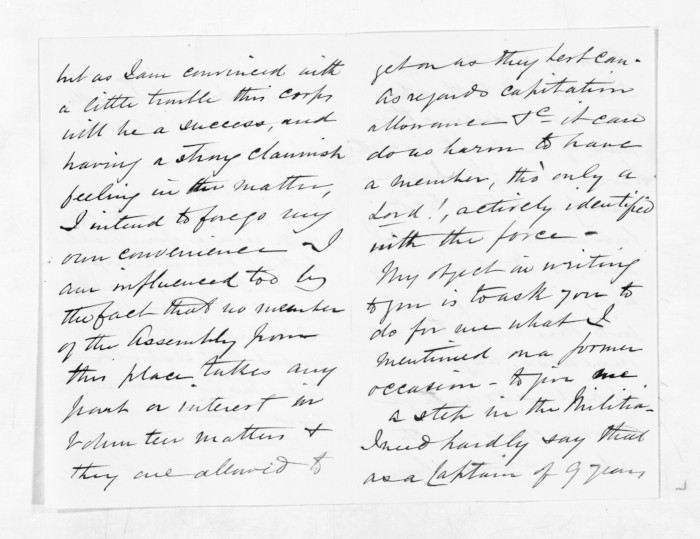 but as I am convinced with
a little trouble this corps
will be a success, and
having a strong clannish
feeling in the matter,
I intend to forego my
own convenience - I
am influenced too by
the fact that no member
of the Assembly from
this place takes any
part or interest in
Volunteer matters &
they are allowed to
get on as they best can -
As regards capitation
allowance &c it can
do us harm to have
a member, tho' only a
Lord!, actively identified
with the force -
My object in writing
to you is to ask you to
do for me what I
mentioned on a former
occasion - to give me
a step in the Militia -
I need hardly say that
as a Captain of 9 years